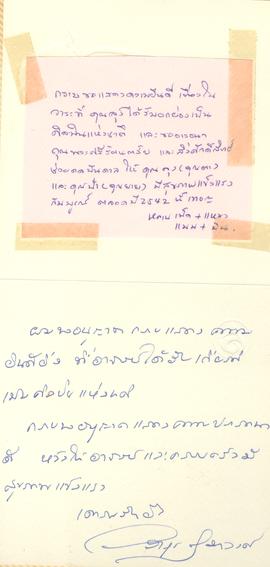 กราบขอแสดงความยินดี เนื่องใน
วาระที่ คุณลุงได้รับยกย่องเป็น
ศิลปินแห่งชาติ และขออาราธนา
คุณพระศรีรัตนตรัย และสิ่งศักดิ์สิทธิ์
ช่วยดลบันดาล ให้ คุณลุง (คุณตา)
และคุณป้า (คุณยาย) มีสุขภาพแข็งแรง
สมบูรณ์ ตลอดปี 2542 นี้ เทอญ
หลาน เพ็ด + แหม่ว
แมน + มีน
ผมขออนุญาต กราบแสดง ความ
ยินดียิ่ง ที่อาจารย์ได้รับเกียรติ
เป็นศิลปินแห่งชาติ
กราบขออนุญาตแสดงความปรารถนา
ดี หวังให้อาจารย์และครอบครัวมี
สุขภาพแข็งแรง
เคารพรักยิ่ง